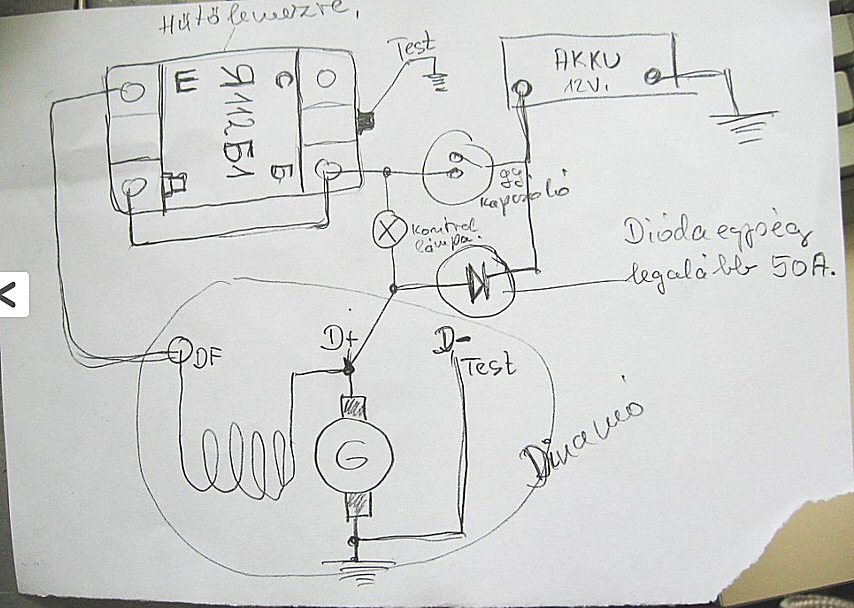 Hűtőlemezre,
Test
AKKU
12V.
Ш
Я112Б1
С
Б
gy.
kapcsoló
Kontrol
lámpa.
Dióda egység
legalább 50A.
DF
D+
D-
Test
G
Dinamó